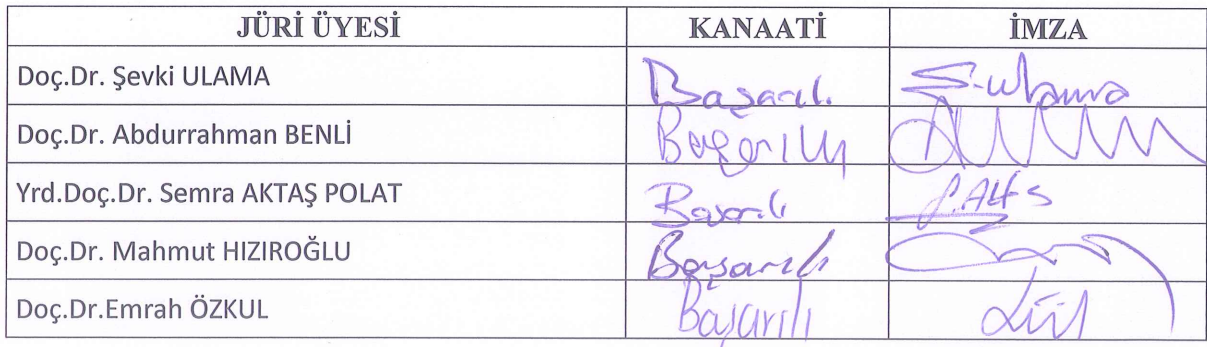 JÜRİ ÜYESİ KANAATİ İMZA
Doç.Dr. Şevki ULAMA Başarılı S.Ulama
Doç.Dr. Abdurrahman BENLİ Başarılı
Yrd.Doç.Dr. Semra AKTAŞ POLAT Başarılı
Doç.Dr. Mahmut HIZIROĞLU Başarılı
Doç.Dr.Emrah ÖZKUL Başarılı